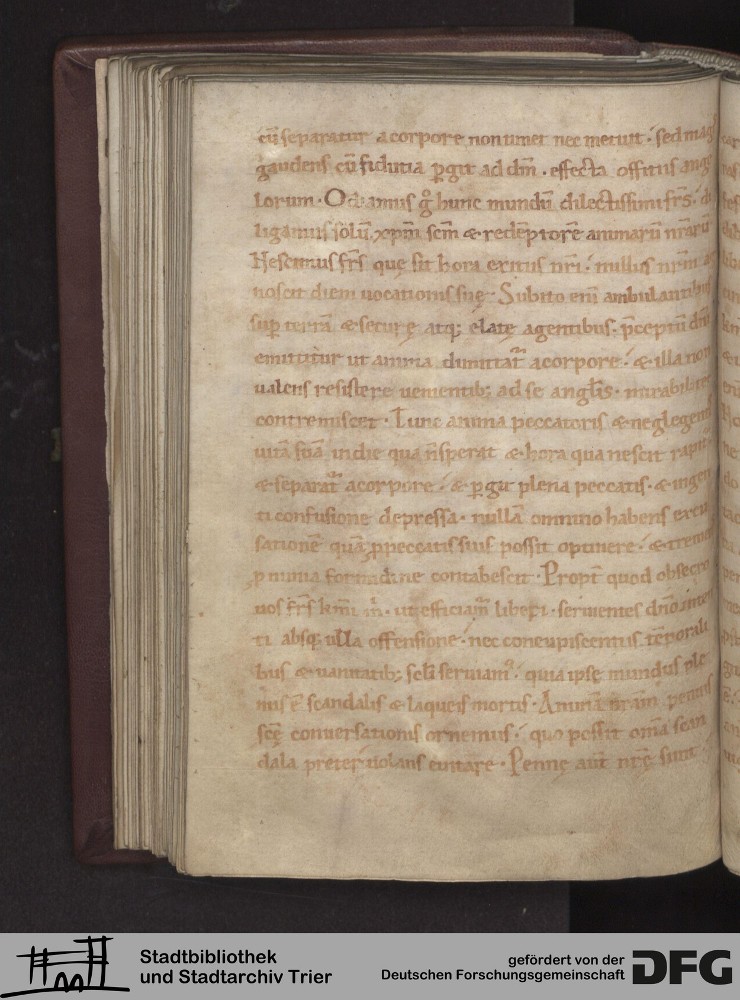 cū separatur a corpore non timet nec metuit · sed magis
gaudens cū fidutia ꝑgit ad dm̄ · effecta offitiis ange
lorum · Odiamus gͦ hunc mundū dilectissimi fr̄s · di
ligamus solū xp̄m scm̄ & redēptorē animarū nr̄arū
Nescimus fr̄s quę sit hora exitus nr̄i · nullus nr̄m ag
noscit diem uocationis suę · Subito eni ambulantibus
sup terrā & securę atq; elatę agentibus · p̄ceptū dn̄i
emittitur ut anima dimittat᷑ a corpore · & illa non
ualens resistere uenientib; ad se angl̄is · mirabiliter
contremiscet · Tunc anima peccatoris & neglegens
uitā suā in die qua n̄ sperat & hora qua nescit rapit᷑
& separat᷑ a corpore · & ꝑgit plena peccatis · & ingen
ti confusione depressa · nullā omnino habens excu
sationē quā ꝓ peccatis suis possit optinere · & tremens
p nimia formidine contabescit · Propt̄ quod obsecro
uos fr̄s km̄i m̄ · ut efficiam᷑ liberi · seruientes dn̄o inten
ti absq; ulla offensione · nec concupiscentiis tēporali
bus & uanitatib; scl̄i seruiam᷑ · quia ipse mundus ple
nus ē scandalis & laqueis mortis · Animā nr̄am pennis
scē conuersationis ornemus · quo possit om̄ia scan
dala preteruolans euitare · Pennę aut̄ nr̄ę sunt
Stadtbibliothek
und Stadtarchiv Trier
gefördert von der
Deutschen Forschungsgemeinschaft
DFG